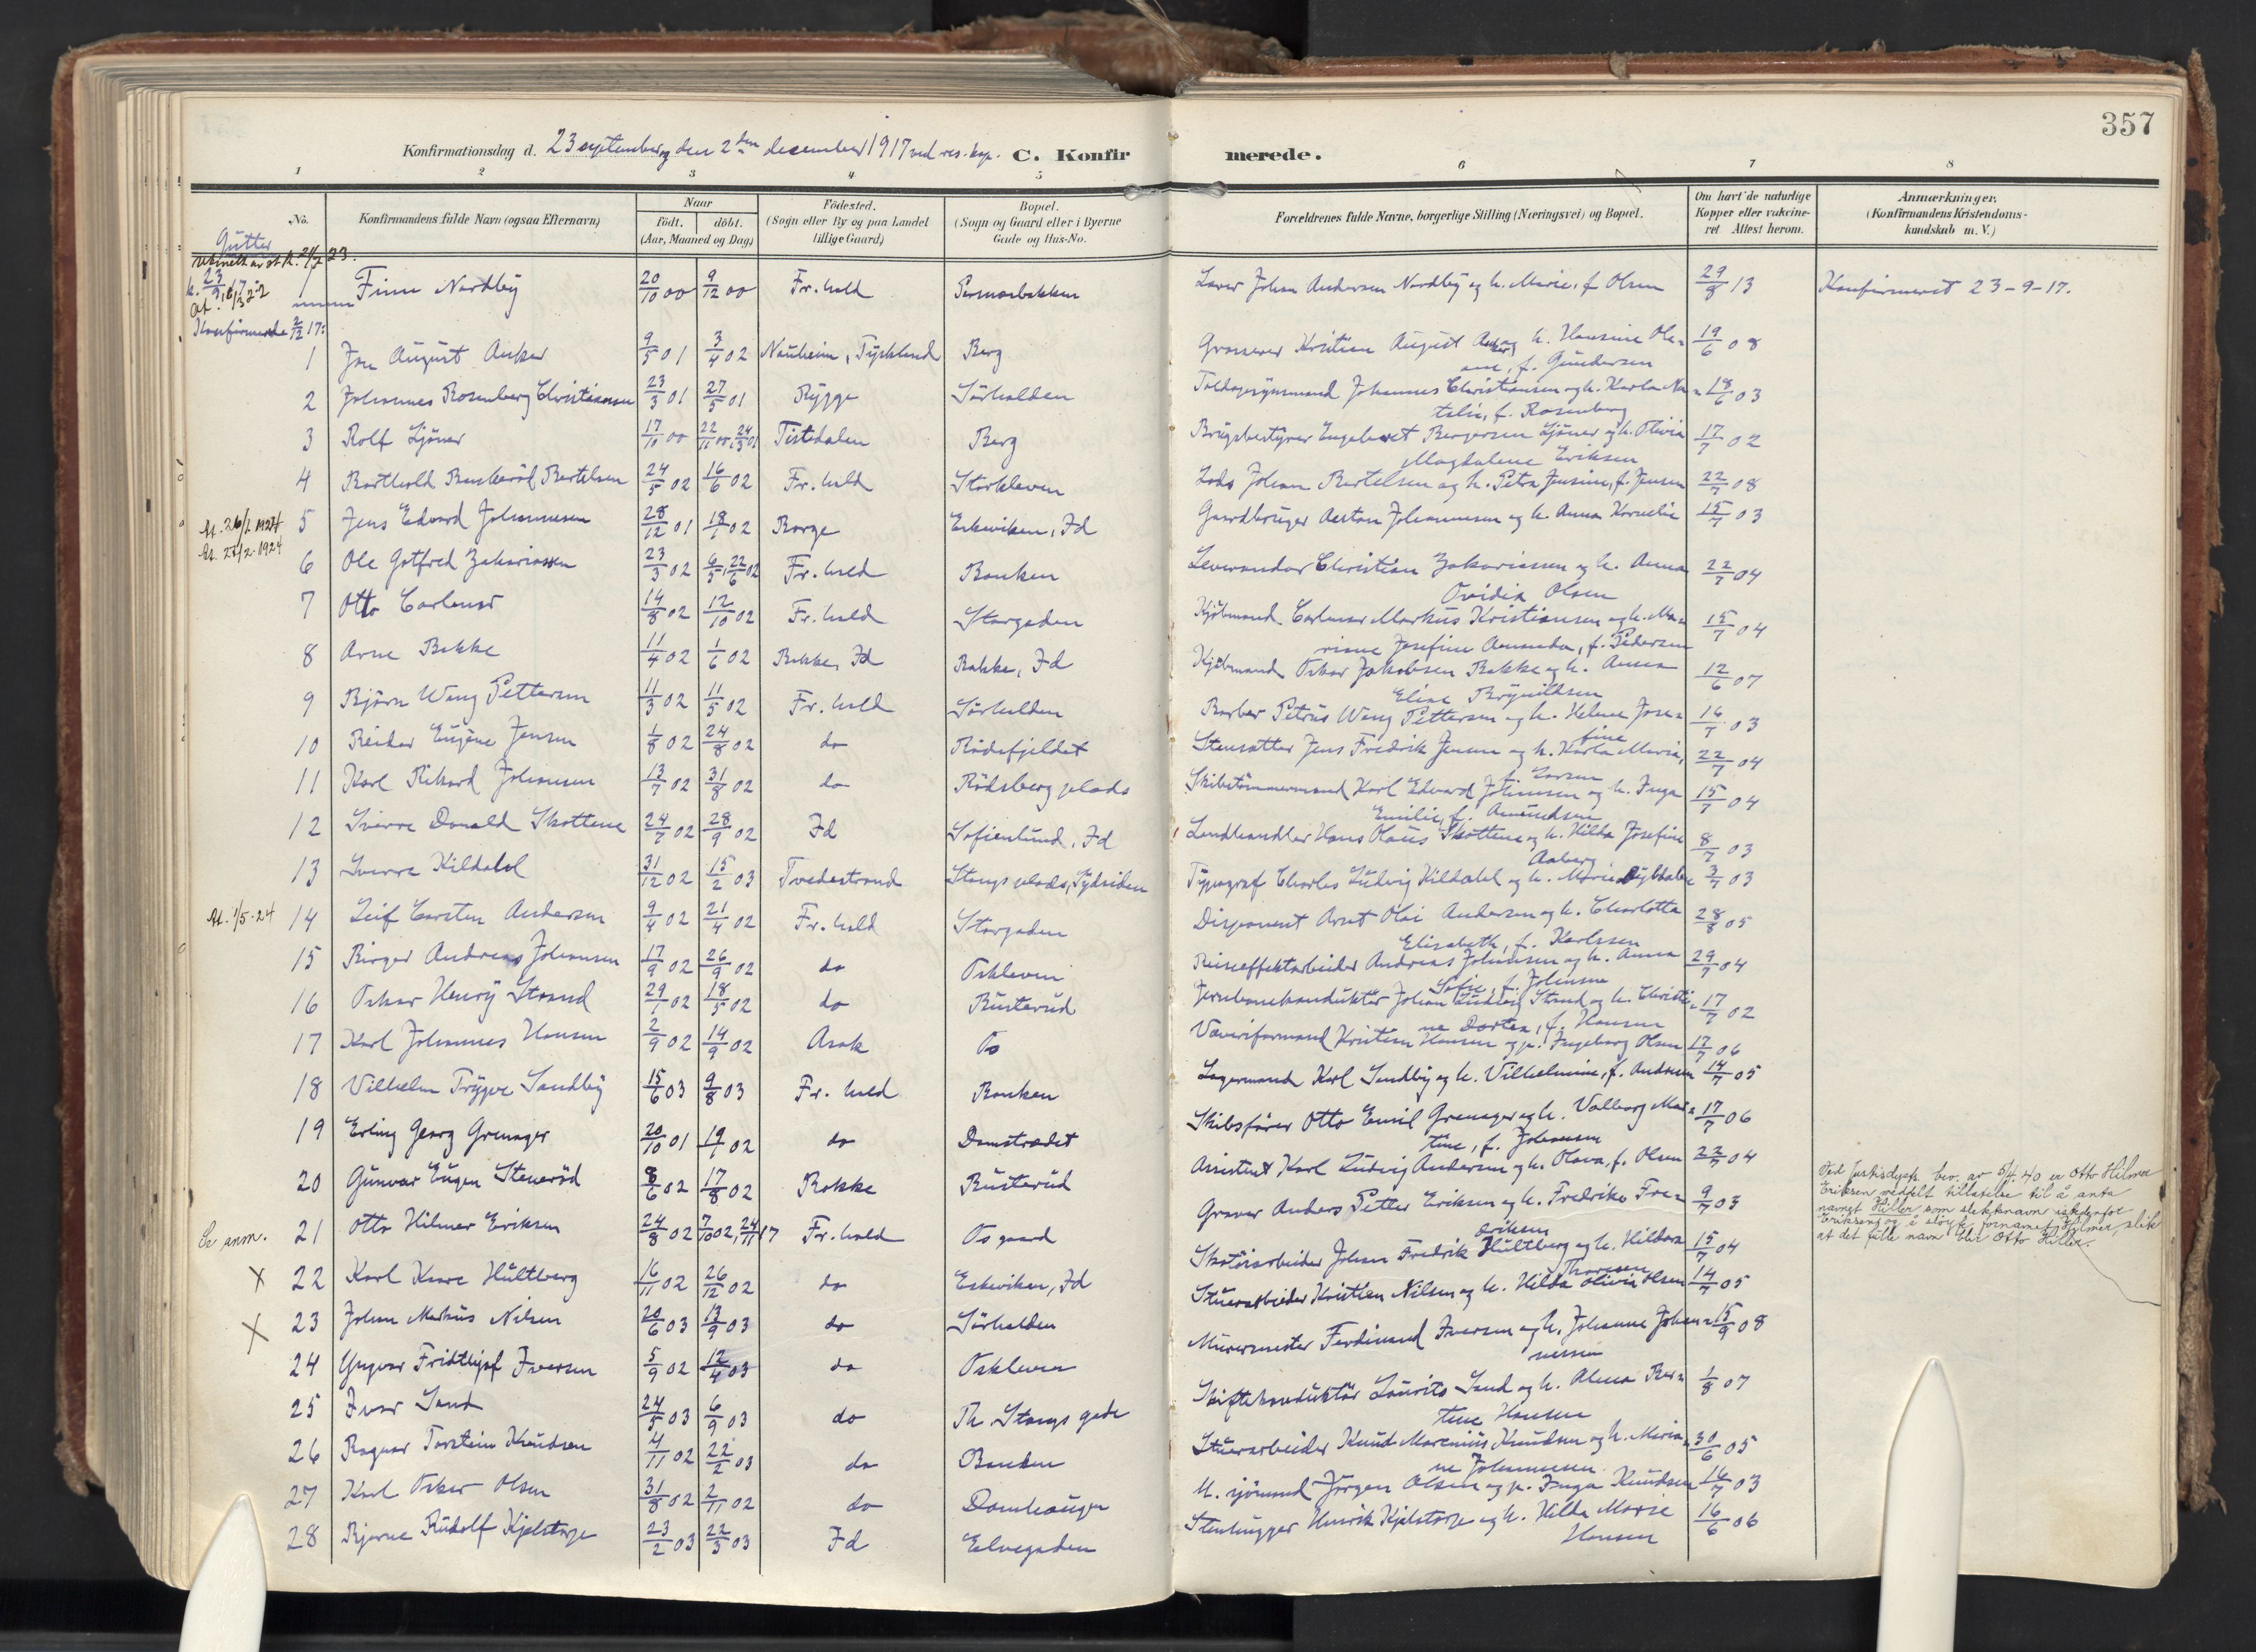 357
Konfirmationsdag d. 23 september og den 2den december 1917 ved res. kap. C. Konfirmerede.
1 2 3 4 5 6 7 8
No. Konfirmandens fulde Navn (ogsaa Efternavn) Naar födt. döbt. (Aar, Maaned og Dag) Födested. (Sogn eller By og paa Landet tillige Gaard) Bopæl. (Sogn og Gaard eller i Byerne Gade og Hus-No. Forældrenes fulde Navne, borgerlige Stilling (Næringsvei) og Bopæl. Om havt de naturlige Kopper eller vakcineret Attest herom. Anmærkninger. (Konfirmandens Kristendomskundskab m. V.)
Gutter
1 Finn Nordby 20/10 00 9/12 00 Fr.hald Johan Andersen Nordby og h. Marie, f. Olsen 29/8 13 Konfirmeret 23-9-17.
Konfirmerede 2/12 17:
1 Jon August Anker 9/5 01 3/4 02 Nauheim, Tyskland Berg Grosserer Kristian August Anker og h. Hansine Ole-
f. Gundersen 19/6 08
2 Johannes Rosenberg Christiansen 23/3 01 27/5 01 Rygge Sörhalden Johannes Christiansen og h. Karla Na-
talie, f. Rosenberg 18/6 03
3 Rolf Sjöner 17/10 00 22/11 00, 24/3 01 Tistedalen Berg Brugsbestyrer Engebret Bergersen Sjöner og h. Olivia
Magdalene Eriksen 17/7 02
4 Barthold Buskeröd Bertelsen 24/5 02 16/6 02 Fr.hald Storkleven Lods Johan Bertelsen og h. Petra Jensine, f. Jensen 22/7 08
5 Jens Edvard Johannesen 28/12 01 18/1 02 Borge Eskeviken, Id Gaardbruger Anton Johannesen og h. Anna Kornelie 15/7 03
At. 27/2-1924
6 Ole Gotfred Zakariassen 23/3 02 6/5, 22/6 02 Fr.hald Banken Leverandør Christian Zakariassen og h. Anna
Ovidia Olsen 22/7 04
7 Otto Carlmar 14/8 02 12/10 02 Fr.hald Storgaden Kjöbmand Carlmar Markus Kristiansen og h. Ma-
Josefine Amanda, f. Pedersen 15/7 04
8 Arne Bakke 11/4 02 1/6 02 Bakke, Id Bakke, Id Kjöbmand Oskar Jakobsen Bakke og h. Anna
Elise Brynildsen 12/6 07
9 Björn Wang Pettersen 11/3 02 11/5 02 Fr.hald Sörhalden Barber Petrus Wang Pettersen og h. Helene Jose-
fine 16/7 03
10 Reidar Eugene Jensen 1/8 02 24/8 02 do Rödsfjeldet Stensætter Jens Fredrik Jensen og h. Karla Maria,
f. Larsen 22/7 04
11 Karl Rikard Johansen 13/7 02 31/8 02 do Rödsberg plads Skibstömmermand Karl Edvard Johansen og h. Inga
Emilie, f. Amundsen 15/7 04
12 Sverre Donald Skottene 24/7 02 28/9 02 Id Sofienlund, Id Landhandler Hans Olaus Skottene og h. Hilda Josefine
Aaberg 8/7 03
13 Sverre Kildahl 31/12 02 15/2 03 Tvedestrand Stangs plads, Sydsiden Typograf Charles Ludvig Kildahl og h. Marie 3/7 03
At. 1/5-24 14 Leif Carsten Andersen 9/4 02 21/4 02 Fr.hald Storgaden Disponent Arnt Olai Andersen og h. Charlotte
Elisabeth, f. Karlssen 28/8 05
15 Birger Andreas Johansen 17/9 02 26/9 02 do Oskleven Reiseeffektarbeider Andreas Johansen og h. Anna
Sofie, f. Johnsen 29/7 04
16 Oskar Henry Strand 29/1 02 18/5 02 do Busterud Jernbanekonduktör Johan Ludvig Strand og h. Christi-
ne Dortea, f. Hansen 17/7 02
17 Karl Johannes Hansen 2/9 02 14/9 02 Asak Os Væveriformand Kristian Hansen og p. Ingeborg Olsen 17/7 06
18 Vilhelm Trygve Sandby 15/6 03 9/8 03 Fr.hald Banken Lagermand Karl Sandby og h. Vilhelmine, f. Andersen 14/7 05
19 Erling Georg Grenager 20/10 01 19/1 02 do Damstrædet Skibsförer Otto Emil Grenager og h. Valborg Mar-
tine, f. Johansen 17/7 06
20 Gunvar Eugen Steneröd 8/6 02 17/8 02 Rokke Busterud Assistent Karl Ludvig Andersen og h. Olava, f. Olsen 22/7 04
Se anm. 21 Otto Hilmer Eriksen 24/8 02 7/10 02, 24/11 17 Fr.hald Os gaard Graver Anders Petter Eriksen og h. Fredrike Fre-
driksen 9/7 03
Ved Justisdept. bev. av 5/4 40 er Otto Hilmer
Eriksen meddelt tillatelse til å anta
navnet Hiller som slektsnavn istedenfor
Eriksen og å sløyfe fornavnet Hilmer, slik
at det fulle navn blir Otto Hiller.
X 22 Karl Kaare Hultberg 16/11 02 26/12 02 do Eskeviken, Id Skotöiarbeider Johan Fredrik Hultberg og h. Hildora
Thoresen 15/7 04
X 23 Johan Markus Nilsen 20/6 03 13/9 03 do Sörhalden Stuerarbeider Kristian Nilsen og h. Hilda Olivia Olsen 14/7 05
24 Yngvar Fridthjof Iversen 5/9 02 12/4 03 do Oskleven Murermester Ferdinand Iversen og h. Johanne Johan-
nesen 15/9 08
25 Ivar Sand 24/5 03 6/9 03 do Th. Stangs gade Skiftekonduktör Laurits Sand og h. Alma Ber-
tine Hansen 1/8 07
26 Ragnar Torstein Knudsen 4/11 02 22/2 03 do Banken Stuerarbeider Knud Marenius Knudsen og h. Maria-
ne Johannesen 30/6 05
27 Karl Oskar Olsen 31/8 02 2/11 02 do Damhaugen U. sjömand Jörgen Olsen og p. Inga Knudsen 16/7 03
28 Bjarne Rudolf Kjelstorp 23/2 03 22/3 03 Id Elvegaden Stenhugger Henrik Kjelstorp og h. Hilda Marie
Hansen 16/6 06